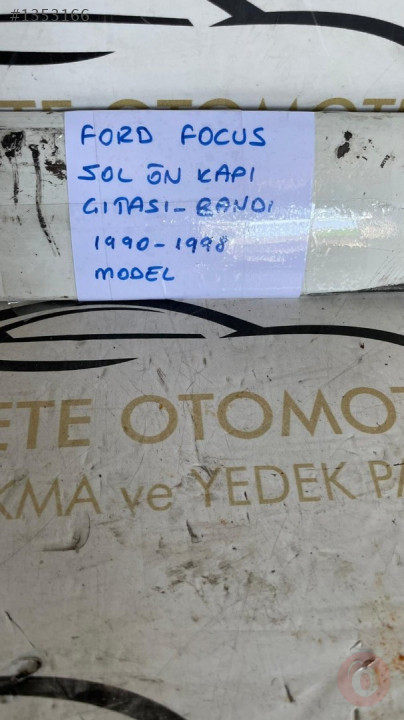 #1353166
ETE OTOMOTİ
FORD FOCUS
SOL ÖN KAPI
ÇITASI-BANDI
1990-1998
MODEL
ETE OTOMOT
KMA ve YEDEK PA